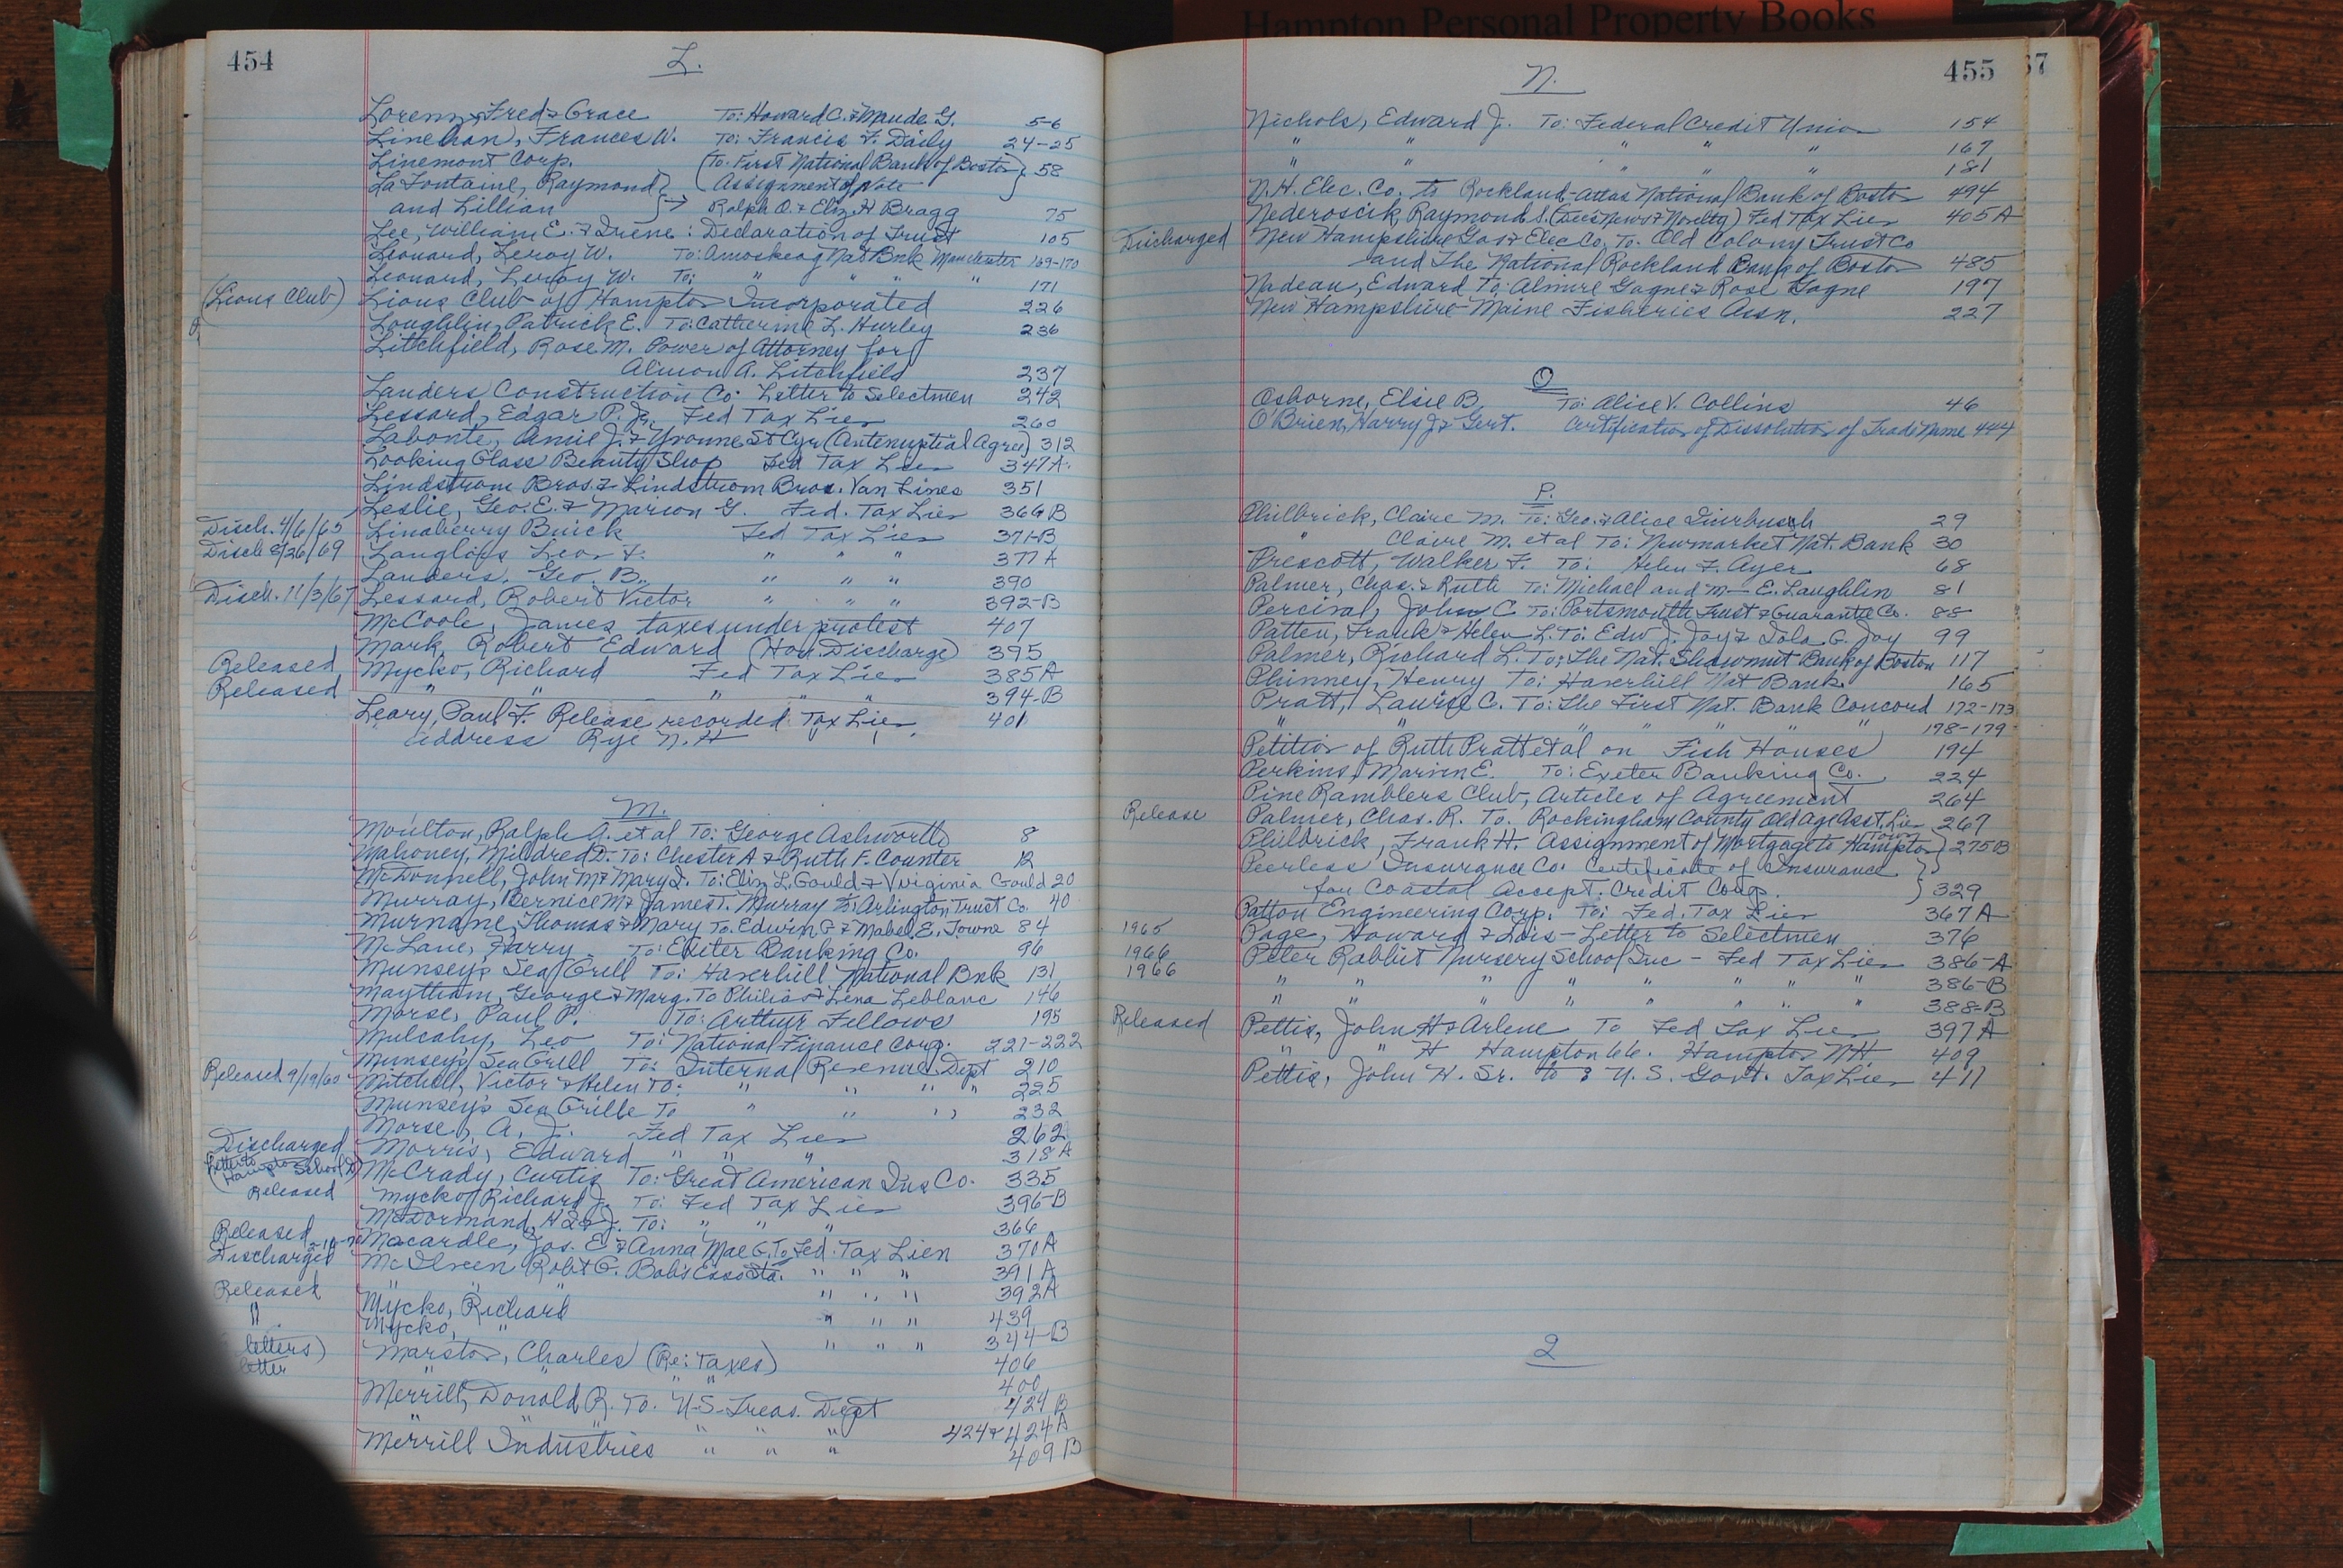 Hampton Personal Property Books
454
L.
Lorenz, Fred & Grace To: Howard C. & Maude G. 5-6
Linehan, Frances W. To: Francis F. Daily 24-25
Linemont Corp. (To: First National Bank of Boston
Assignment of Note } 58
La Fontaine, Raymond
and Lillian } → Ralph O. & Eliz. H Bragg 75
Lee, William E. & Irene: Declaration of Trust 105
Leonard, Leroy W. To: Amoskeag Nat Bnk Manchester 169-170
Leonard, Leroy W. To: " " " " 171
(Lions Club) Lions Club of Hampton Incorporated 226
Loughlin, Patrick E. To: Catherine L. Hurley 236
Litchfield, Rose M. Power of Attorney for
Almon A. Litchfield 237
Landers Construction Co. Letter to Selectmen 242
Lessard, Edgar P. Jr. Fed Tax Lien 260
Labonte, Amie J. & Yvonne St Cyr (Antenuptial Agree) 312
Looking Glass Beauty Shop Fed Tax Lien 347A.
Lindstrom Bros. & Lindstrom Bros. Van Lines 351
Leslie, Geo. E. & Marion G. Fed. Tax Lien 366B
Disch. 4/6/65 Linaberry Buick Fed Tax Lien 371-B
Disch 8/26/69 Langlois Leo F. " " " 377A
Landers, Geo. B. " " " 390
Disch. 11/3/67 Lessard, Robert Victor " " " 392-B
McCoole, James taxes under protest 407
Mark, Robert Edward (Hon. Discharge) 395
Released Mycko, Richard Fed Tax Lien 385A
Released " " " " " 394-B
Leary, Paul F. Release recorded Tax Lien 401
address Rye N.H
M.
Moulton, Ralph G. et al To: George Ashworth 8
Mahoney, Mildred D. To: Chester A & Ruth F. Counter 12
McDonnell, John M & Mary I. To: Eliz L. Gould & Virginia Gould 20
Murray, Bernice M & James T. Murray To: Arlington Trust Co. 40
Murnane, Thomas & Mary To. Edwin G & Mabel E. Towne 84
McLane, Harry To: Exeter Banking Co. 96
Munsey's Sea Grill To: Haverhill National Bnk 131
Maytham, George & Marg. To Philias & Lena Leblanc 146
Morse, Paul P. To: Arthur Fellows 195
Mulcahy, Leo To: National Finance Corp. 221-222
Munsey's Sea Grill To: Internal Revenue Dept 210
Released 9/19/60 Mitchell, Victor & Helen To: " " " " 225
Munsey's Sea Grille To " " " 232
Morse, A. J. Fed Tax Lien 262
Discharged Morris, Edward " " " 318A
(Letter to Hampton School D) McCrady, Curtis To: Great American Ins Co. 335
Released Mycko, Richard J. To: Fed Tax Lien 396-B
McDormand, To: " " " 366
Released Macardle, Jos. E & Anna Mae G. To Fed. Tax Lien 370A
Discharged McIlveen Robt G. Bob's Esso Sta. " " " 391A
" " " " " 392A
Released Mycko, Richard " " " 439
" Mycko, " " " " 344-B
letters) Marston, Charles (Re: Taxes) 406
letter " " " " 400
Merrill, Donald R. To. U.S. Treas. Dept 424B
" " " 424 & 424A
Merrill Industries " " " 409B
455
57
N.
Nichols, Edward J. To: Federal Credit Union 154
" " " " " 167
" " " " " 181
N.H. Elec. Co. to Rockland-Atlas National Bank of Boston 494
Nederoscik, Raymond S. (Dee's News & Novelty) Fed Tax Lien 405A
Discharged New Hampshire Gas & Elec Co. To. Old Colony Trust Co
and The National Rockland Bank of Boston 485
Nadeau, Edward To: Almire Gagne & Rose Gagne 197
New Hampshire-Maine Fisheries Assn. 227
O
Osborne, Elsie B. To: Alice V. Collins 46
O'Brien, Harry J & Gert. Certification of Dissolution of Trade Name 444
P.
Philbrick, Claire M. To: Geo. & Alice 29
" Claire M. et al To: Newmarket Nat. Bank 30
Prescott, Walker F. To: Helen F. Ayer 68
Palmer, Chas. & Ruth To: Michael and M— E. Laughlin 81
Percival, John C To: Portsmouth Trust & Guarantee Co. 88
Patten, Frank & Helen L. To: Edw J. Joy & Iola G. Joy 99
Palmer, Richard L. To: The Nat. Shawmut Bank of Boston 117
Phinney, Henry To: Haverhill Nat Bank 165
Pratt, Laurie C. To: The First Nat. Bank Concord 172-173
" " " " " " " 178-179
Petition of Ruth Pratt et al on Fish Houses 194
Perkins, Marion E. To: Exeter Banking Co. 224
Pine Ramblers Club, Articles of Agreement 264
Release Palmer, Chas. R. To. Rockingham County Old Age Asst. Lien 267
Philbrick, Frank H. Assignment of Mortgage to Town Hampton } 275B
Peerless Insurance Co. Certificate of Insurance
for Coastal Accept. Credit Corp. } 329
Patton Engineering Corp. To: Fed. Tax Lien 367A
1965 Page, Howard & Lois - Letter to Selectmen 376
1966 Peter Rabbit Nursery School Inc - Fed Tax Lien 386-A
1966 " " " " " " " " 386-B
" " " " " " " " 388-B
Released Pettis, John H & Arlene To Fed Tax Lien 397A
" " H Hampton 66. Hampton NH 409
Pettis, John H. Sr. to U.S. Govt. Tax Lien 411
Q